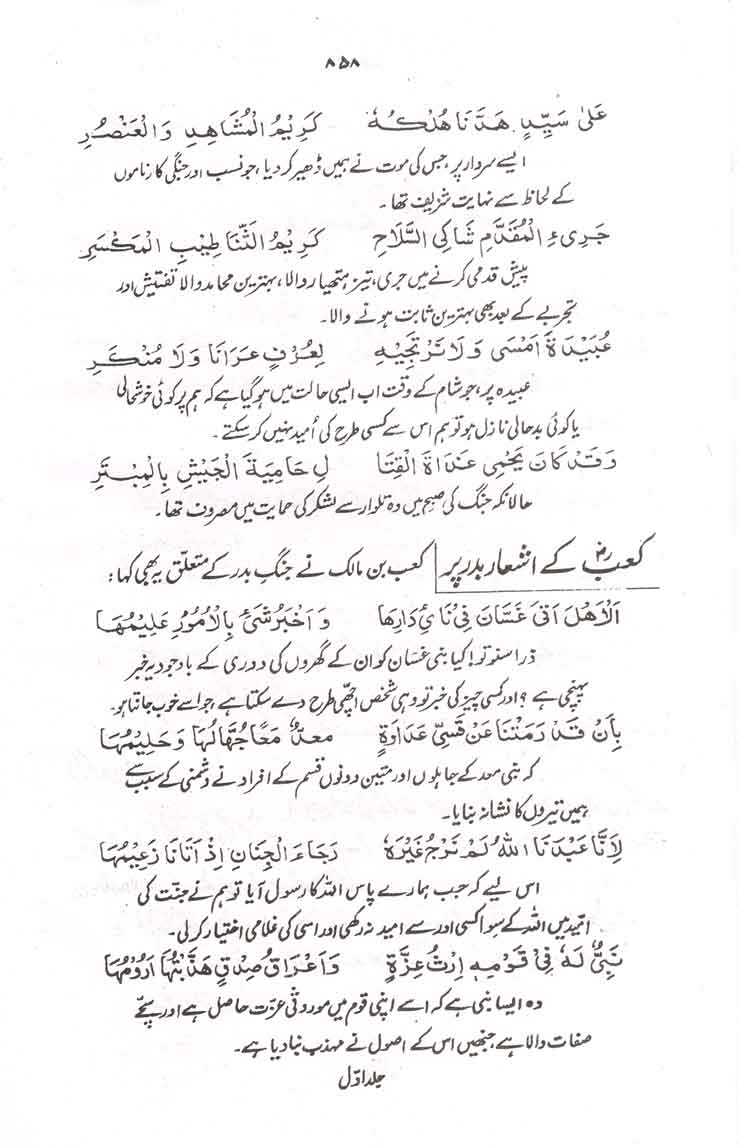 ۸۵۸
عَلیٰ سَیِّدٍ هَدَّنَا هُلْکُهٗ کَرِیْمُ الْمُشَاهِدِ وَالْعَنْصُرِ
ایسے سردار پر، جس کی موت نے ہمیں ڈھیر کر دیا، جو نسب اور جنگی کارناموں
کے لحاظ سے نہایت شریف تھا۔
جَرِیءِ الْمُقَدَّمِ شَاکِی السَّلَاحِ کَرِیْمُ الثَّنَا طِیْبِ الْمَکْسَرِ
پیش قدمی کرنے میں جری، تیز ہتھیار والا، بہترین محامد والا تفتیش اور
تجربے کے بعد بھی بہترین ثابت ہونے والا۔
عُبَیْدَةَ اَمْسٰی وَلَا نَرْتَجِیْهِ لِعُرْفٍ عَرَانَا وَلَا مُنْکَرِ
عبیدہ پر، جو شام کے وقت اب ایسی حالت میں ہو گیا ہے کہ ہم پر کوئی خوشحالی
یا کوئی بدحالی نازل ہو تو ہم اس سے کسی طرح کی اُمید نہیں کر سکتے۔
وَقَدْ کَانَ یَحْمِی غَدَاةَ الْقِتَا لِ حَامِیَةَ الْجَیْشِ بِالْمِبْتَرِ
حالانکہ جنگ کی صبح میں وہ تلوار سے لشکر کی حمایت میں مصروف تھا۔
کعبؓ کے اشعار بدر پر کعب بن مالک نے جنگِ بدر کے متعلق یہ بھی کہا:
اَلَاهَلْ اَتٰی غَسَّانَ فِیْ نَائِ دَارِهَا وَاَخْبَرُ شَیْءٍ بِالْاُمُوْرِ عَلِیْمُهَا
ذرا سنو تو! کیا بنی غسان کو ان کے گھروں کی دوری کے باوجود یہ خبر
پہنچی ہے؟ اور کسی چیز کی خبر تو وہی شخص اچھی طرح دے سکتا ہے جو اسے خوب جانتا ہو۔
بِاَنْ قَدْ رَمَتْنَا عَنْ قَسِیِّ عَدَاوَةٍ مَعَدٌّ مَعًا جُهَّالُهَا وَحَلِیْمُهَا
کہ بنی معد کے جاہلوں اور متین دونوں قسم کے افراد نے دشمنی کے سبب سے
ہمیں تیروں کا نشانہ بنایا۔
لِاَنَّا عَبَدْنَا اللهُ لَمْ نَرْجُ غَیْرَهٗ رَجَاءَ الْجِنَانِ اِذْ اَتَانَا زَعِیْمُهَا
اس لیے کہ جب ہمارے پاس اللہ کا رسول آیا تو ہم نے جنت کی
امید میں اللہ کے سوا کسی اور سے امید نہ رکھی اور اسی کی غلامی اختیار کر لی۔
نَبِیٌّ لَهٗ فِیْ قَوْمِهٖ اِرْثُ عِزَّةٍ وَاَعْرَاقُ صِدْقٍ هَذَّبَتْهَا اَرُوْمُهَا
وہ ایسا نبی ہے کہ اسے اپنی قوم میں موروثی عزت حاصل ہے اور سچے
صفات والا ہے، جنھیں اس کے اصول نے مہذب بنا دیا ہے۔
جلد اوّل